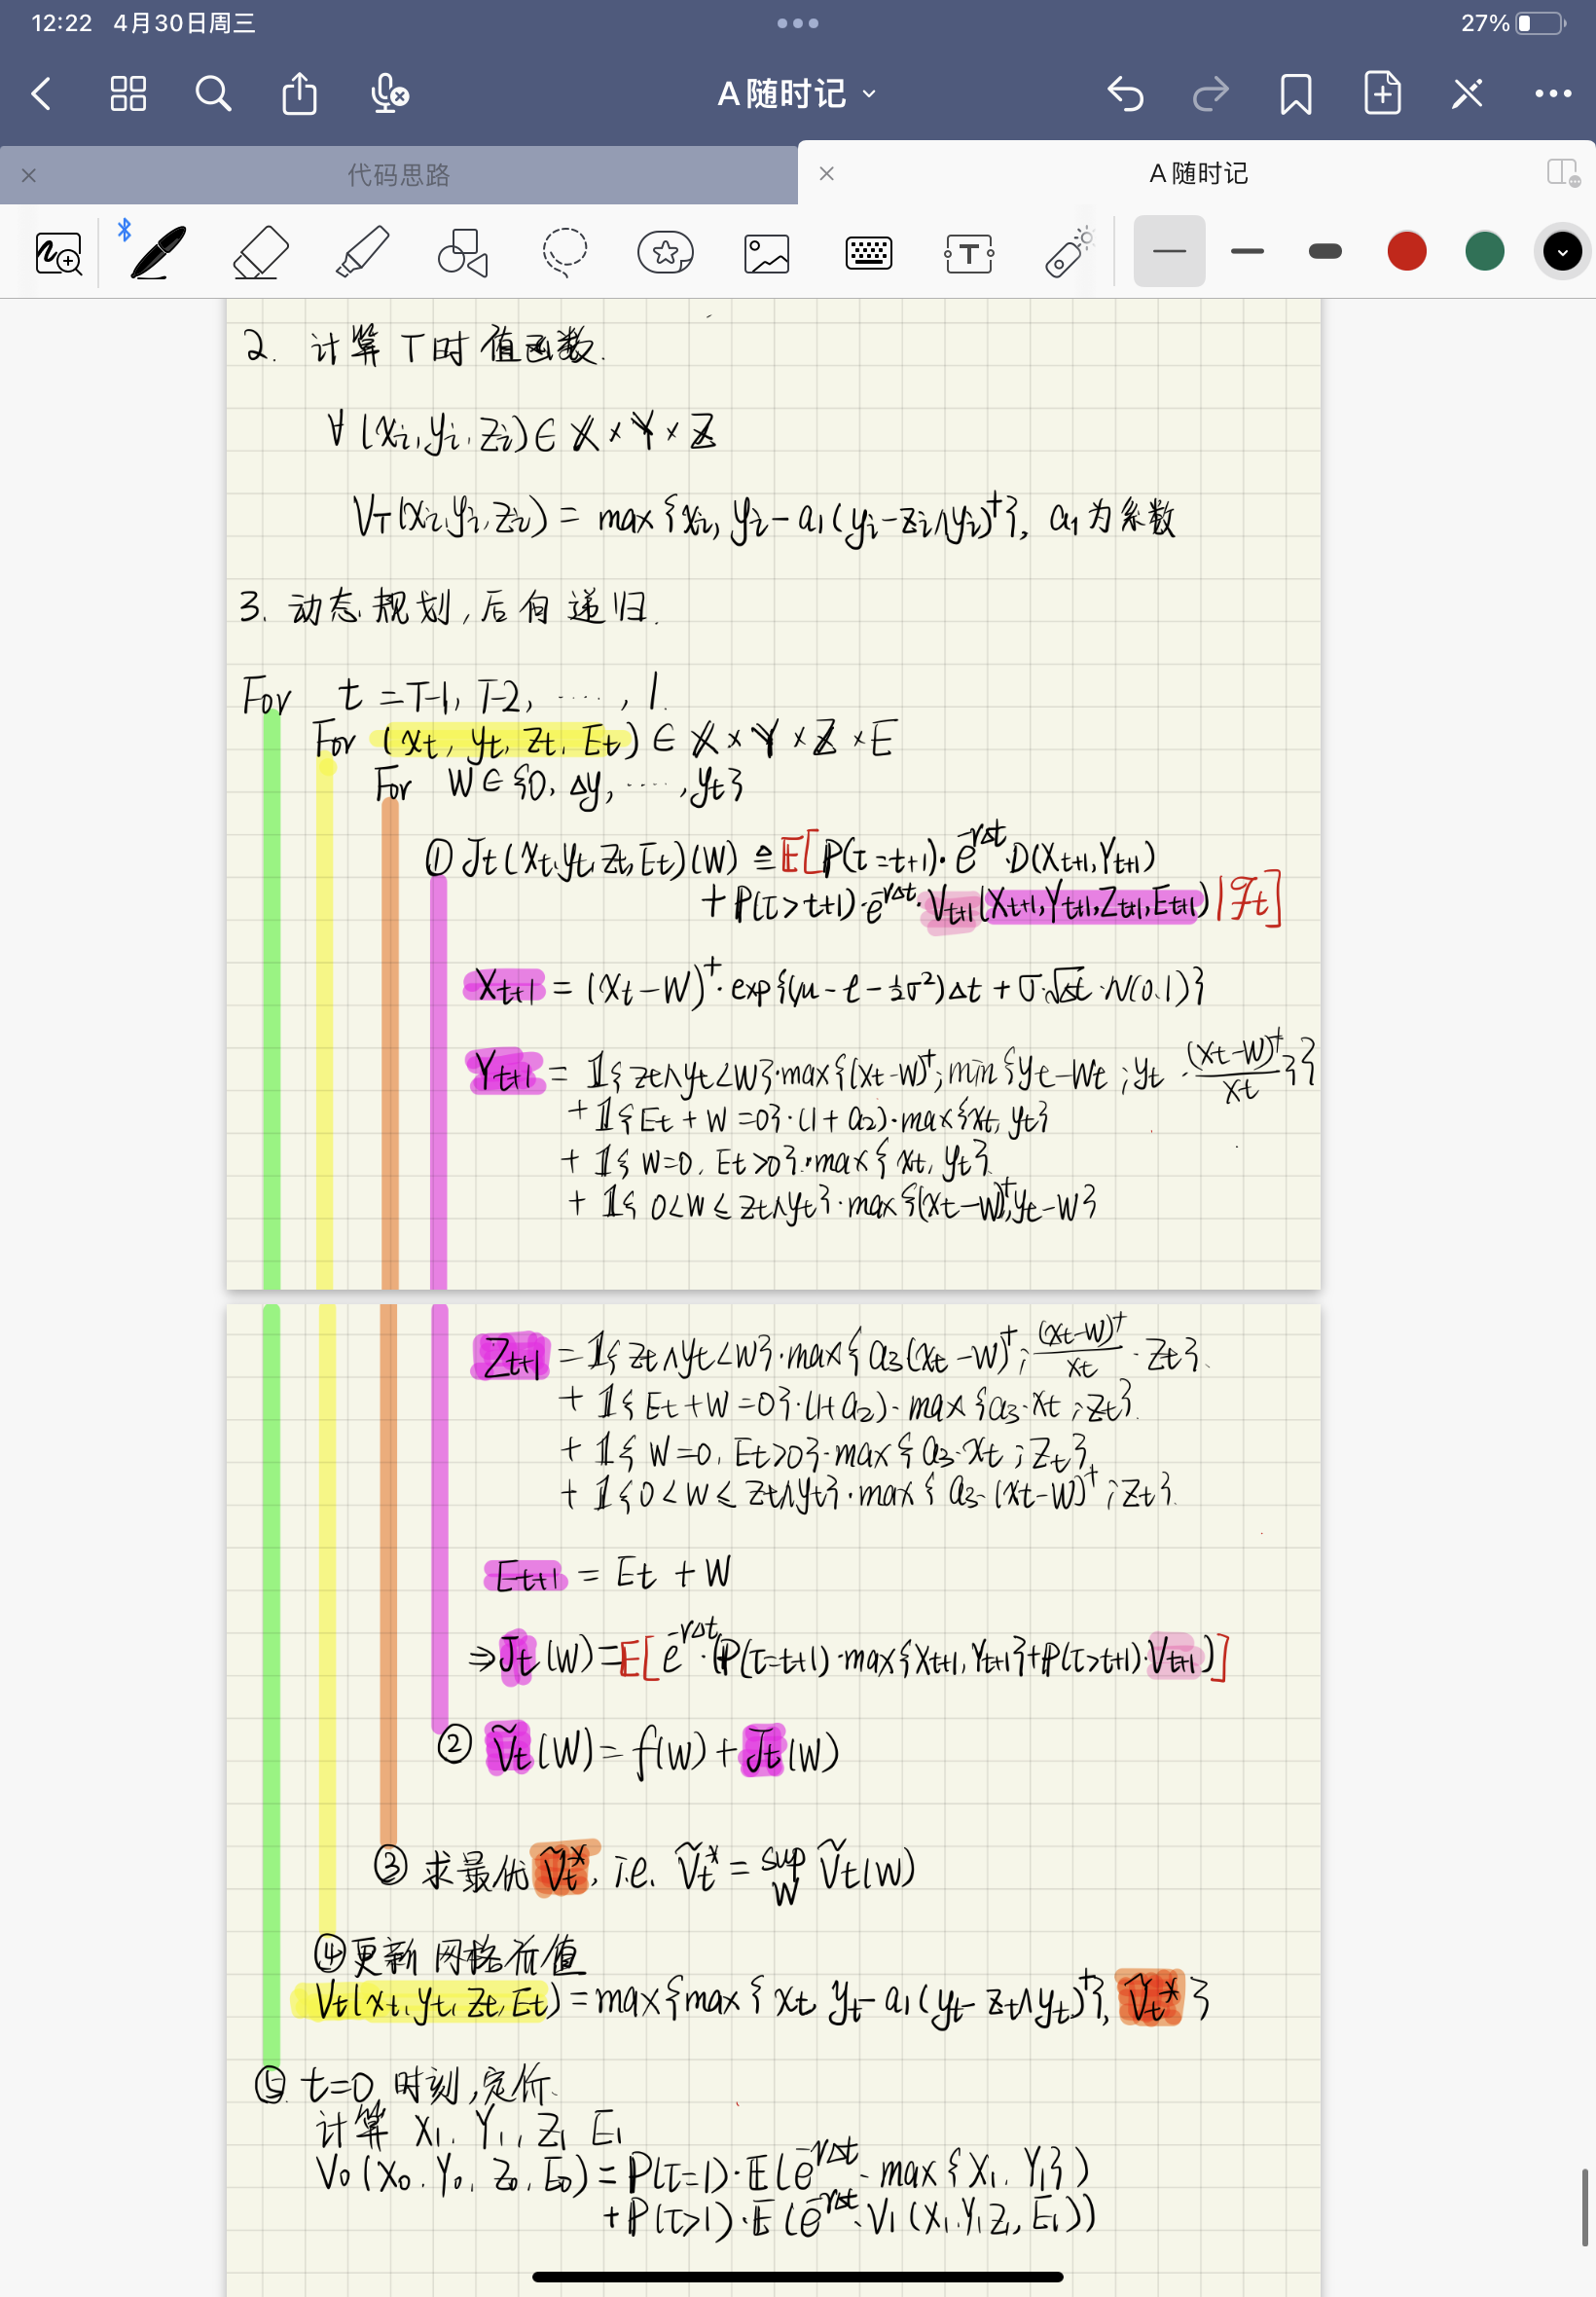 12:22 4月30日周三
27%
A 随时记
代码思路
A 随时记
2. 计算 T时 值函数.
∀ (xi, yi, zi) ∈ X × Y × Z
VT(xi, yi, zi) = max{xi, yi - a1(yi - zi∧yi)⁺}, a1 为系数
3. 动态规划, 后向递归.
For t = T-1, T-2, ····, 1.
For (xt, yt, zt, Et) ∈ X × Y × Z × E
For W ∈ {0, Δy, ····, yt}
① Jt(Xt, yt, Zt, Et)(W) ≜ E[P(τ=t+1)· e^{-rΔt}·D(Xt+1, Yt+1)
+ P(τ>t+1)·e^{-rΔt}·Vt+1(Xt+1, Yt+1, Zt+1, Et+1) | ℱt]
Xt+1 = (Xt-W)⁺· exp{(μ - ℓ - ½σ²)Δt + σ·√Δt·N(0.1)}
Yt+1 = 𝟙{zt∧yt<W}·max{(xt-W)⁺; min{yt-Wt ; yt · (xt-W)⁺/xt}}
+ 𝟙{Et + W =0}·(1+a2)·max{xt, yt}
+ 𝟙{W=0, Et>0}·max{xt, yt}
+ 𝟙{0<W≤zt∧yt}·max{(xt-W)⁺, yt-W}
Zt+1 = 𝟙{zt∧yt<W}·max{a3(xt-W)⁺; (xt-W)⁺/xt · Zt}.
+ 𝟙{Et+W=0}·(1+a2)·max{a3·xt ; zt}.
+ 𝟙{W=0, Et>0}·max{a3·xt ; Zt}
+ 𝟙{0<W≤zt∧yt}·max{a3·(xt-W)⁺ ; zt}.
Et+1 = Et + W
⇒ Jt(W) = E[e^{-rΔt}·(P(τ=t+1)·max{Xt+1, Yt+1}+P(τ>t+1)·Vt+1)]
② Ṽt(W) = f(W) + Jt(W)
③ 求最优 Ṽt*, i.e. Ṽt* = sup_W Ṽt(W)
④ 更新 网格价值
Vt(xt, yt, zt, Et) = max{max{xt, yt - a1(yt - zt∧yt)⁺}, Ṽt*}
⑤ t=0 时刻, 定价.
计算 X1, Y1, Z1 E1
V0(X0, Y0, Z0, E0) = P(τ=1)·E(e^{-rΔt}· max{X1, Y1})
+ P(τ>1)·E(e^{-rΔt}·V1(X1, Y1, Z1, E1))